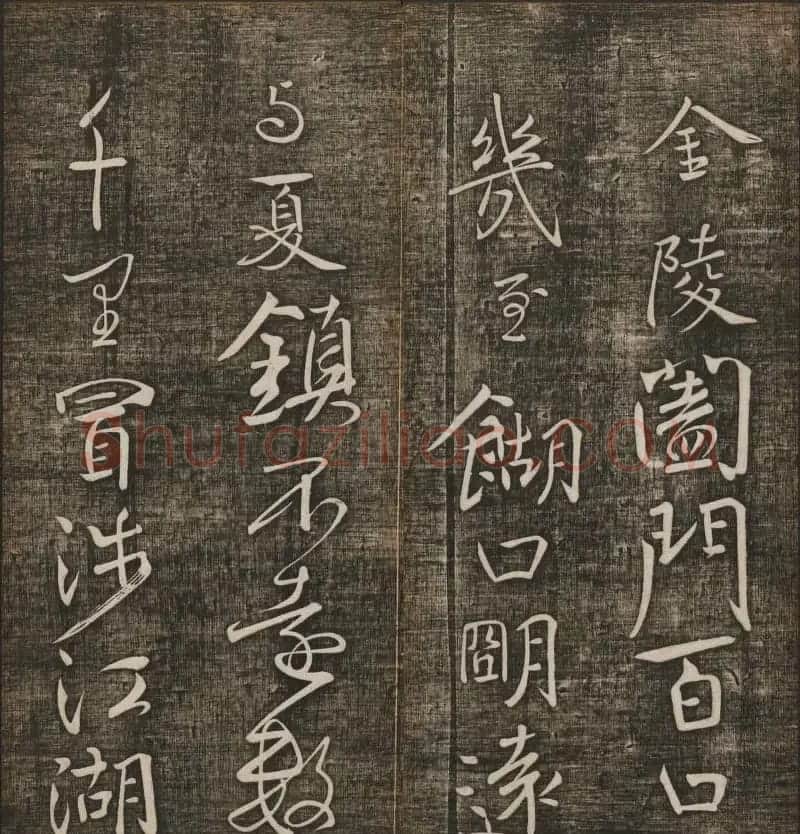 金陵闔門百口
幾至餬口朙遠
与夏鎮不遠數
千里冒涉江湖
Shufaziliao.COM